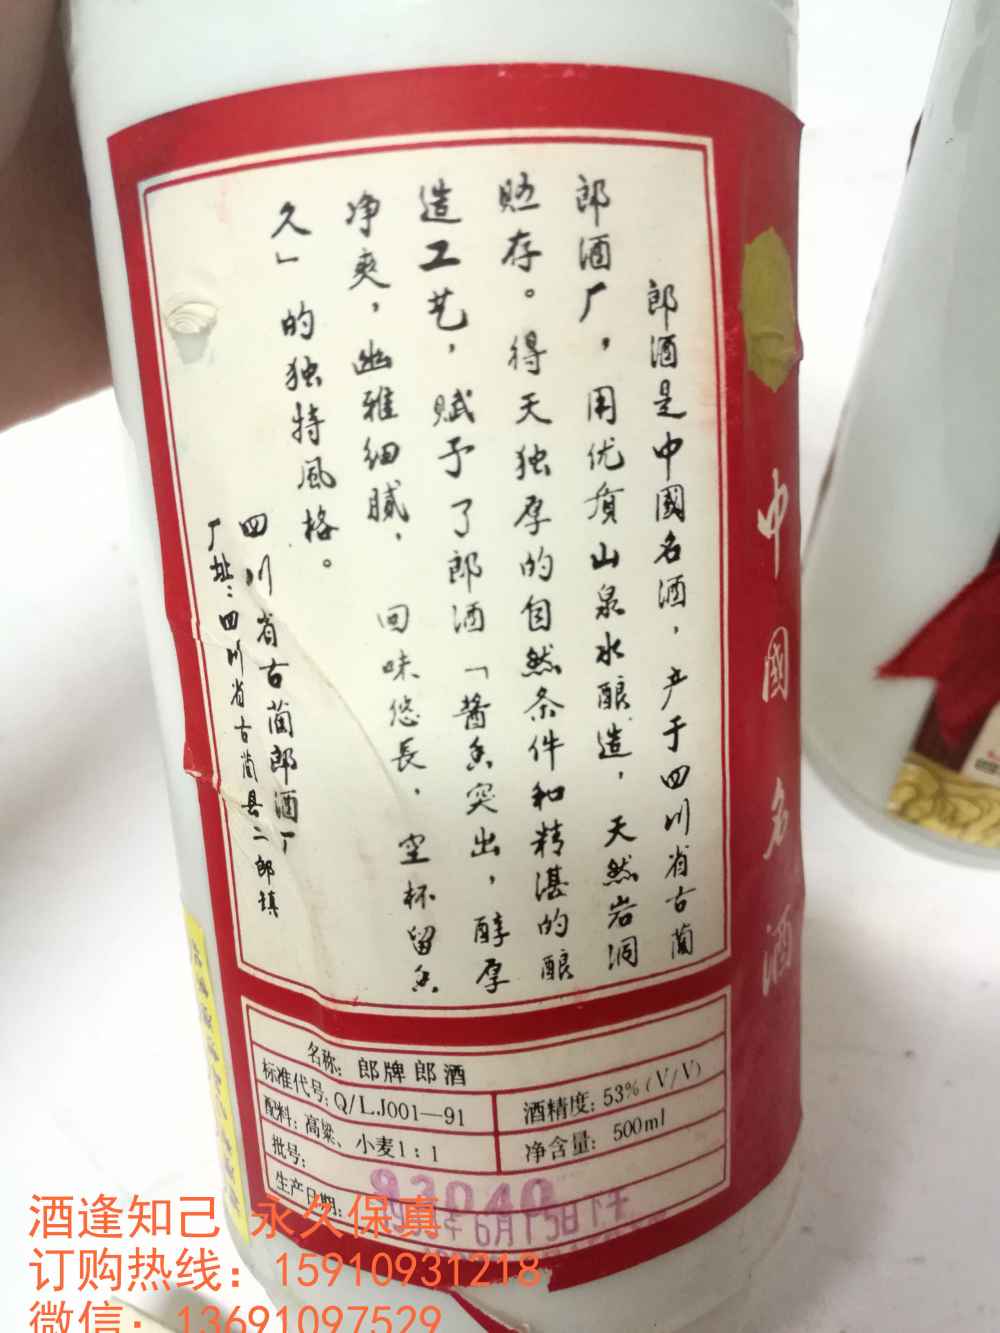 郎酒是中國名酒，产于四川省古蔺
郎酒厂，用优质山泉水酿造，天然岩洞
贮存。得天独厚的自然条件和精湛的酿
造工艺，赋予了郎酒「酱香突出，醇厚
净爽，幽雅细腻，回味悠長，空杯留香
久」的独特風格。
四川省古蔺郎酒厂
厂址：四川省古蔺县二郎镇
中國名酒
名称：郎牌郎酒
标准代号：Q/L.J001—91
酒精度：53%（V/V）
配料：高粱、小麦1：1
净含量：500ml
批号：
93040
生产日期：
年6月15日
酒逢知己 永久保真
订购热线：15910931218
微信：13691097529